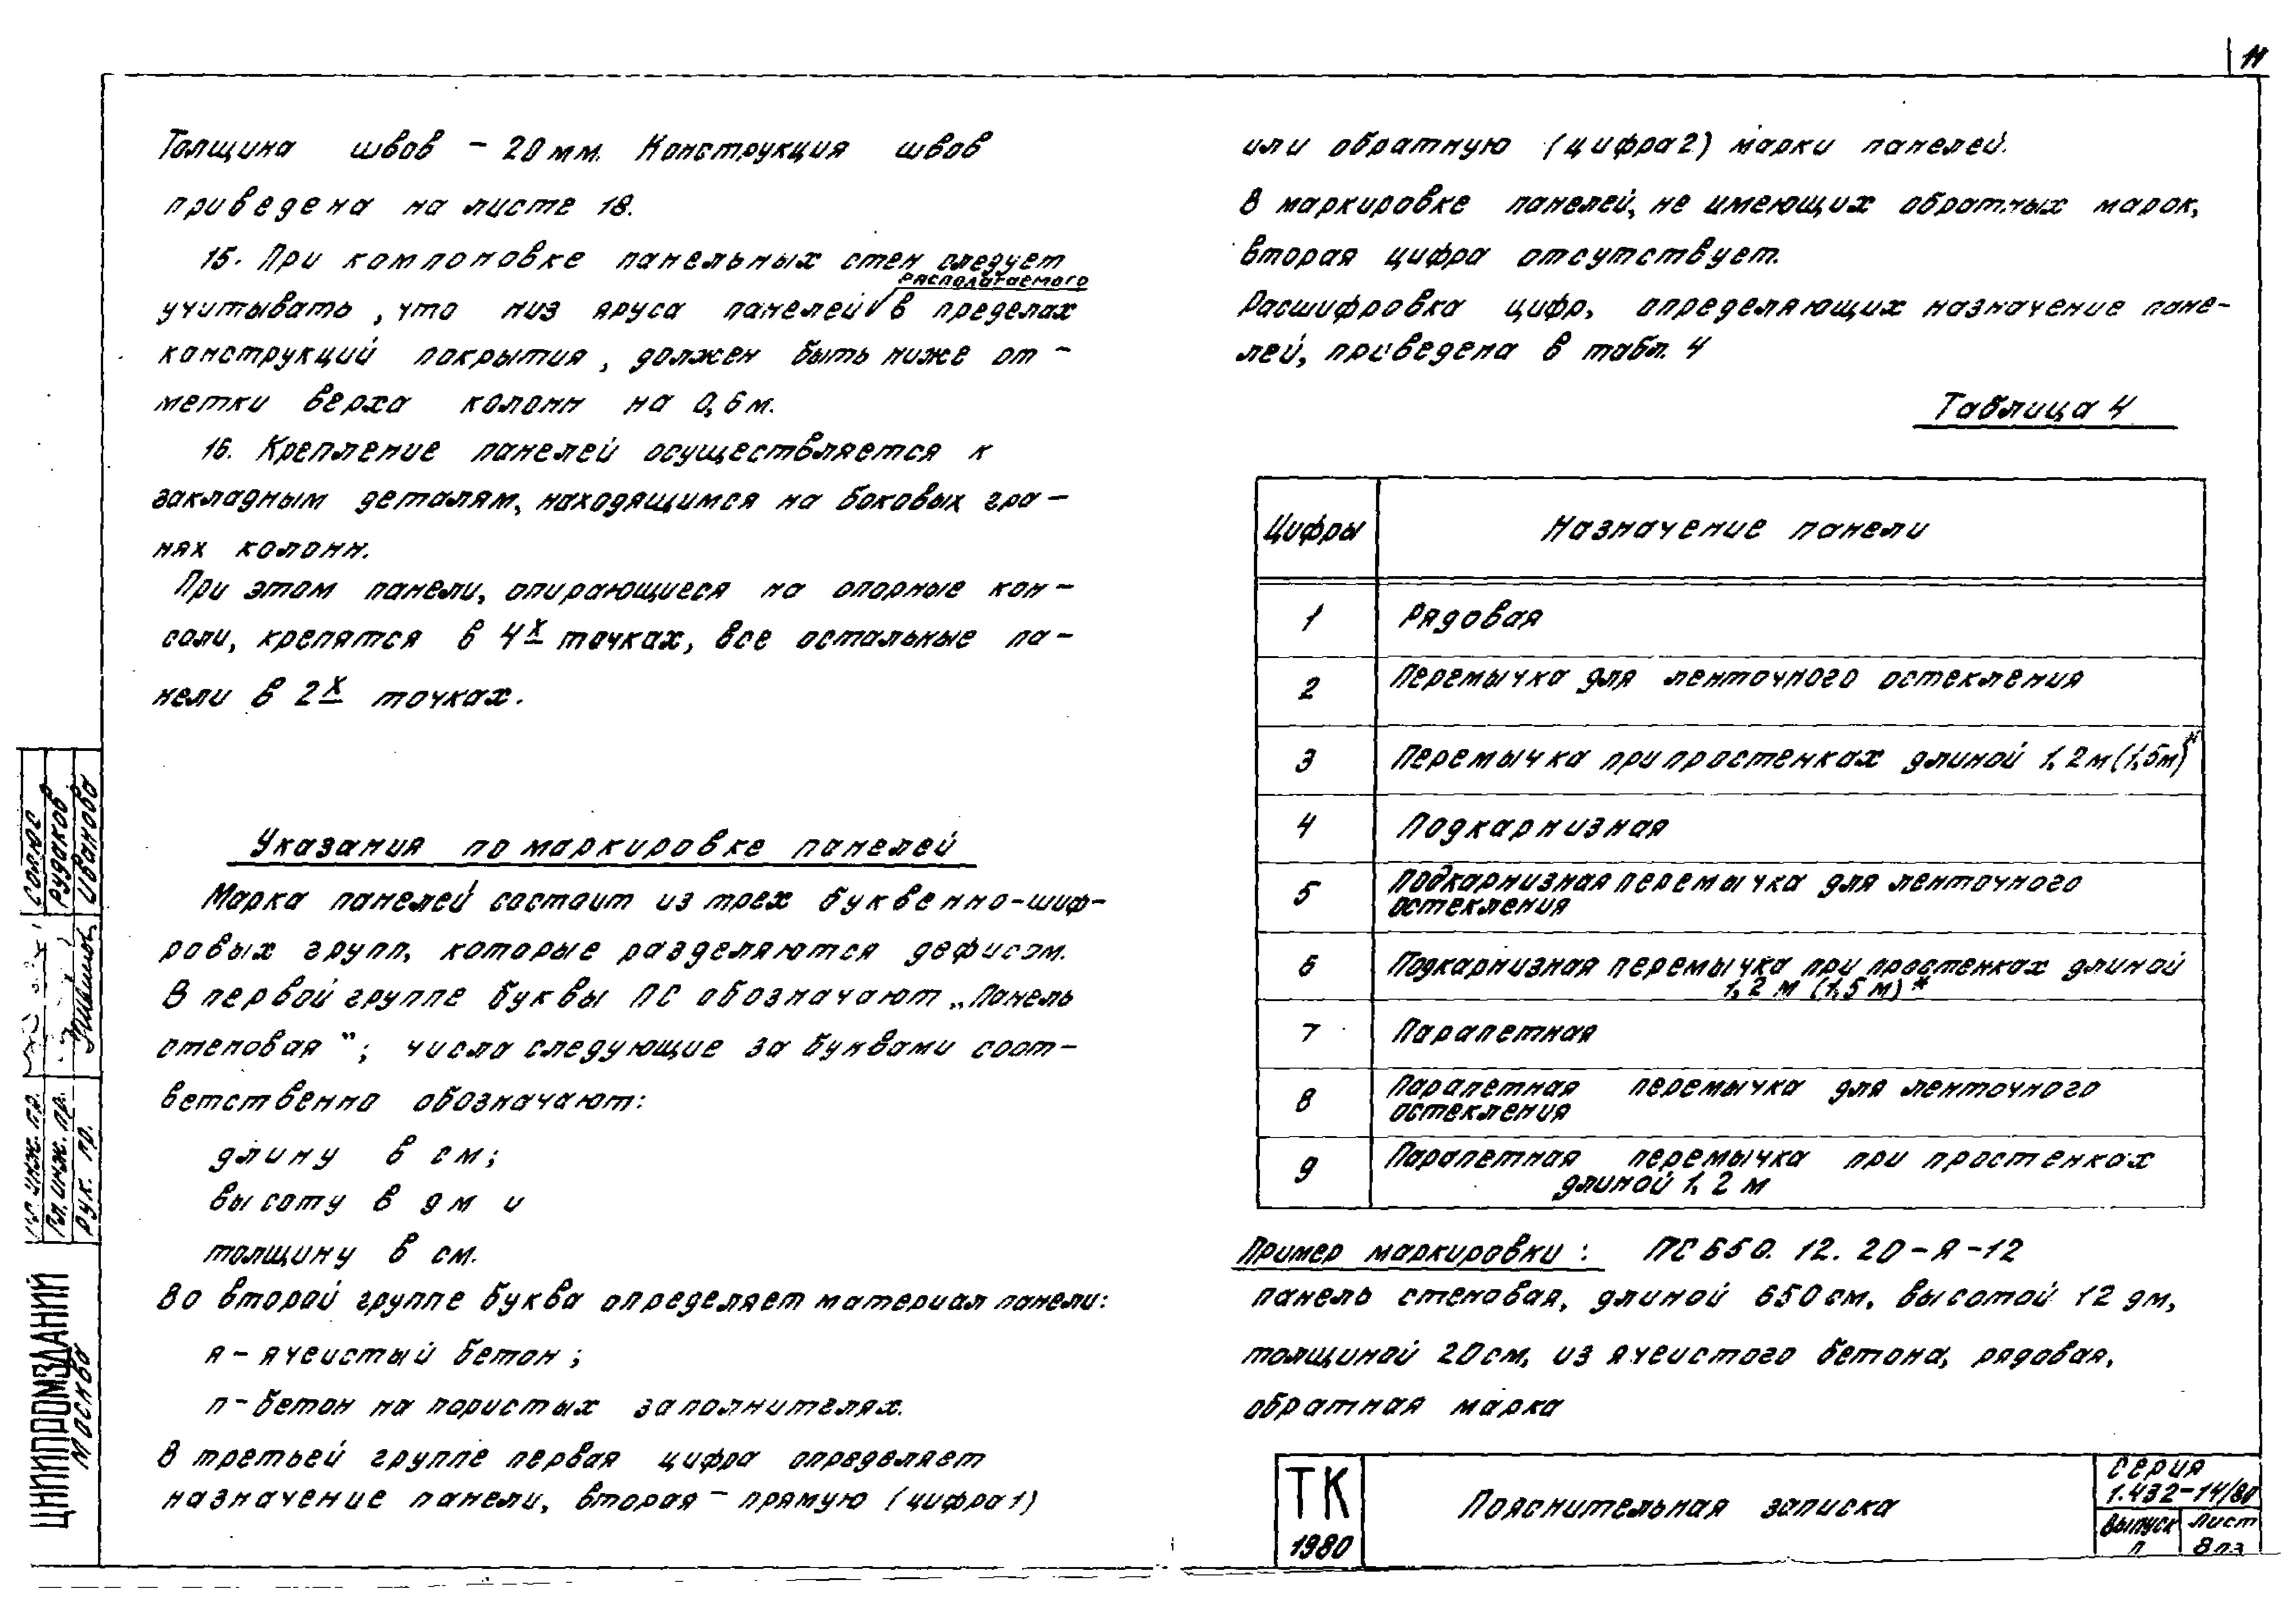 11
Толщина швов - 20 мм. Конструкция швов
приведена на листе 18.
15. При компоновке панельных стен следует
располагаемого
учитывать, что низ яруса панелей в пределах
конструкций покрытия, должен быть ниже от-
метки верха колонн на 0,6 м.
16. Крепление панелей осуществляется к
закладным деталям, находящимся на боковых гра-
нях колонн.
При этом панели, опирающиеся на опорные кон-
соли, крепятся в 4х точках, все остальные па-
нели в 2х точках.
Указания по маркировке панелей
Марка панелей состоит из трех буквенно-шиф-
ровых групп, которые разделяются дефисом.
В первой группе буквы ПС обозначают „Панель
стеновая"; числа следующие за буквами соот-
ветственно обозначают:
длину в см;
высоту в дм и
толщину в см.
Во второй группе буква определяет материал панели:
я - ячеистый бетон;
п - бетон на пористых заполнителях.
В третьей группе первая цифра определяет
назначение панели, вторая - прямую (цифра 1)
или обратную (цифра 2) марки панелей.
В маркировке панелей, не имеющих обратных марок,
вторая цифра отсутствует.
Расшифровка цифр, определяющих назначение пане-
лей, приведена в табл. 4
Таблица 4
Цифры Назначение панели
1 Рядовая
2 Перемычка для ленточного остекления
3 Перемычка при простенках длиной 1,2 м (1,5 м)*
4 Подкарнизная
5 Подкарнизная перемычка для ленточного
остекления
6 Подкарнизная перемычка при простенках длиной
1,2 м (1,5 м)*
7 Парапетная
8 Парапетная перемычка для ленточного
остекления
9 Парапетная перемычка при простенках
длиной 1,2 м
Пример маркировки: ПС 650. 12. 20 - Я - 12
панель стеновая, длиной 650 см, высотой 12 дм,
толщиной 20 см, из ячеистого бетона, рядовая,
обратная марка
ТК
1980
Пояснительная записка
Серия
1.432-14/80
Выпуск Лист
II 8пз
Рудаков
Иванова
Гл. инж. пр.
Рук. гр.
ЦНИИПРОМЗДАНИЙ
Москва